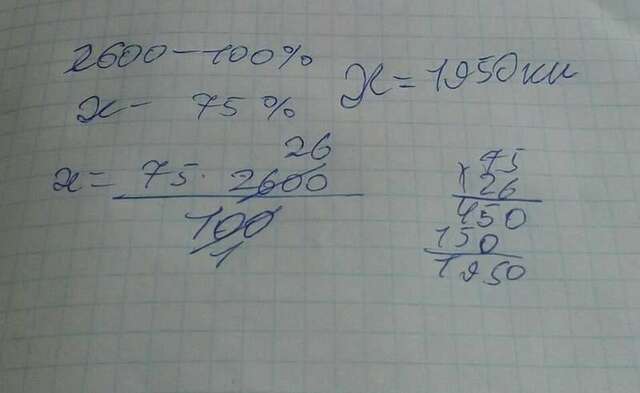 2600 - 100%
x - 75%
x = 75 · 2600 / 100
26
1
x = 1950 км
75
× 26
450
150
1950